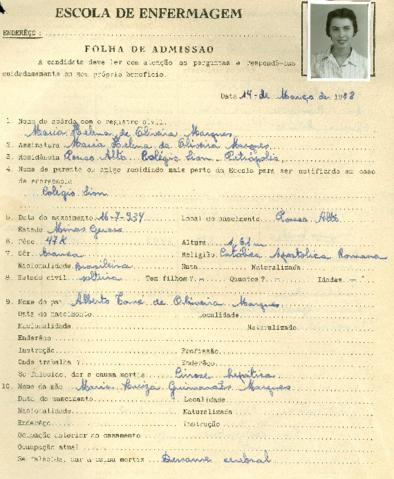 ESCOLA DE ENFERMAGEM
ENDERÊÇO :
FOLHA DE ADMISSÃO
A candidata deve ler com atenção as perguntas e respondê-las
cuidadosamente ao seu próprio benefício.
Data 14 de Março de 19
1 Nome de acôrdo com o registro civil.
Maria Helena de Oliveira Marques
2. Assinatura Maria Helena de Oliveira Marques
3. Residência Pouso Alto Colégio Sion Petrópolis
4. Nome de parente ou amigo residindo mais perto da Escola para ser notificado em caso
de
Colégio Sion
5. Data do nascimento 16-7-934 Local do nascimento Pouso Alto
Estado Minas Gerais
6. Pêso: 47K Altura
7. Côr: branca Religião Católica Apostólica Romana
Nacionalidade Brasileira Nata Naturalizada
8. Estado civil solteira Tem filhos? Quantos? Idades
9. Nome do pai Alberto de Oliveira Marques
Data do nascimento Localidade
Nacionalidade Naturalizado
Enderêço
Instrução Profissão
Onde trabalha? Enderêço
Se falecido, dar a causa mortis Cirrose hepática
10. Nome da mãe Maria Guimarães Marques
Data do nascimento Localidade
Nacionalidade Naturalizada
Enderêço Instrução
Ocupação anterior ao casamento
Ocupação atual
Se falecida, dar a causa mortis Derrame cerebral